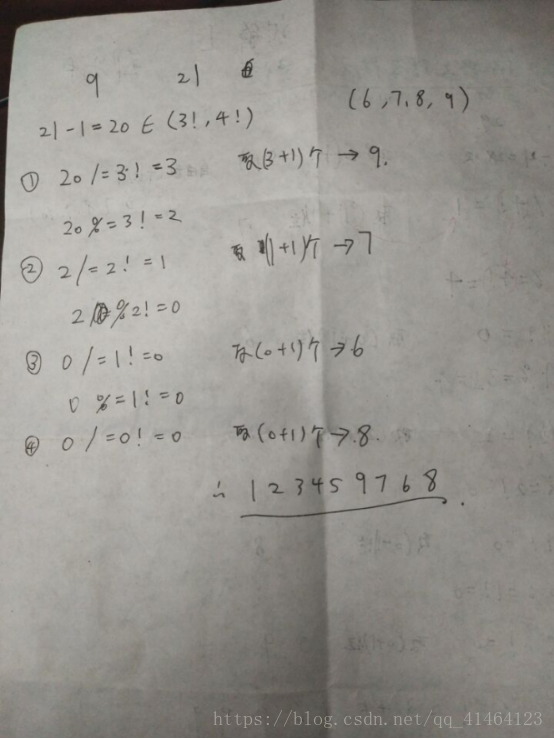 9 21
21-1=20 ∈ (3!, 4!) (6,7,8,9)
① 20/=3!=3 取(3+1)个→9.
20%=3!=2
② 2/=2!=1 取(1+1)个→7
2%2!=0
③ 0/=1!=0 取(0+1)个→6
0 %=1!=0
④ 0/=0!=0 取(0+1)个→8.
∴ 1 2 3 4 5 9 7 6 8.
https://blog.csdn.net/qq_41464123